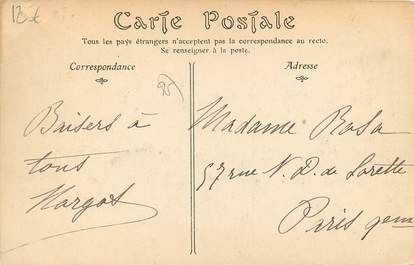 12 €
Carte Postale
Tous les pays étrangers n'acceptent pas la correspondance au recto.
Se renseigner à la poste.
Correspondance
Adresse
95
Baisers à
tous
Margot
Madame Rosa
57 rue N. D. de Lorette
Paris 9em